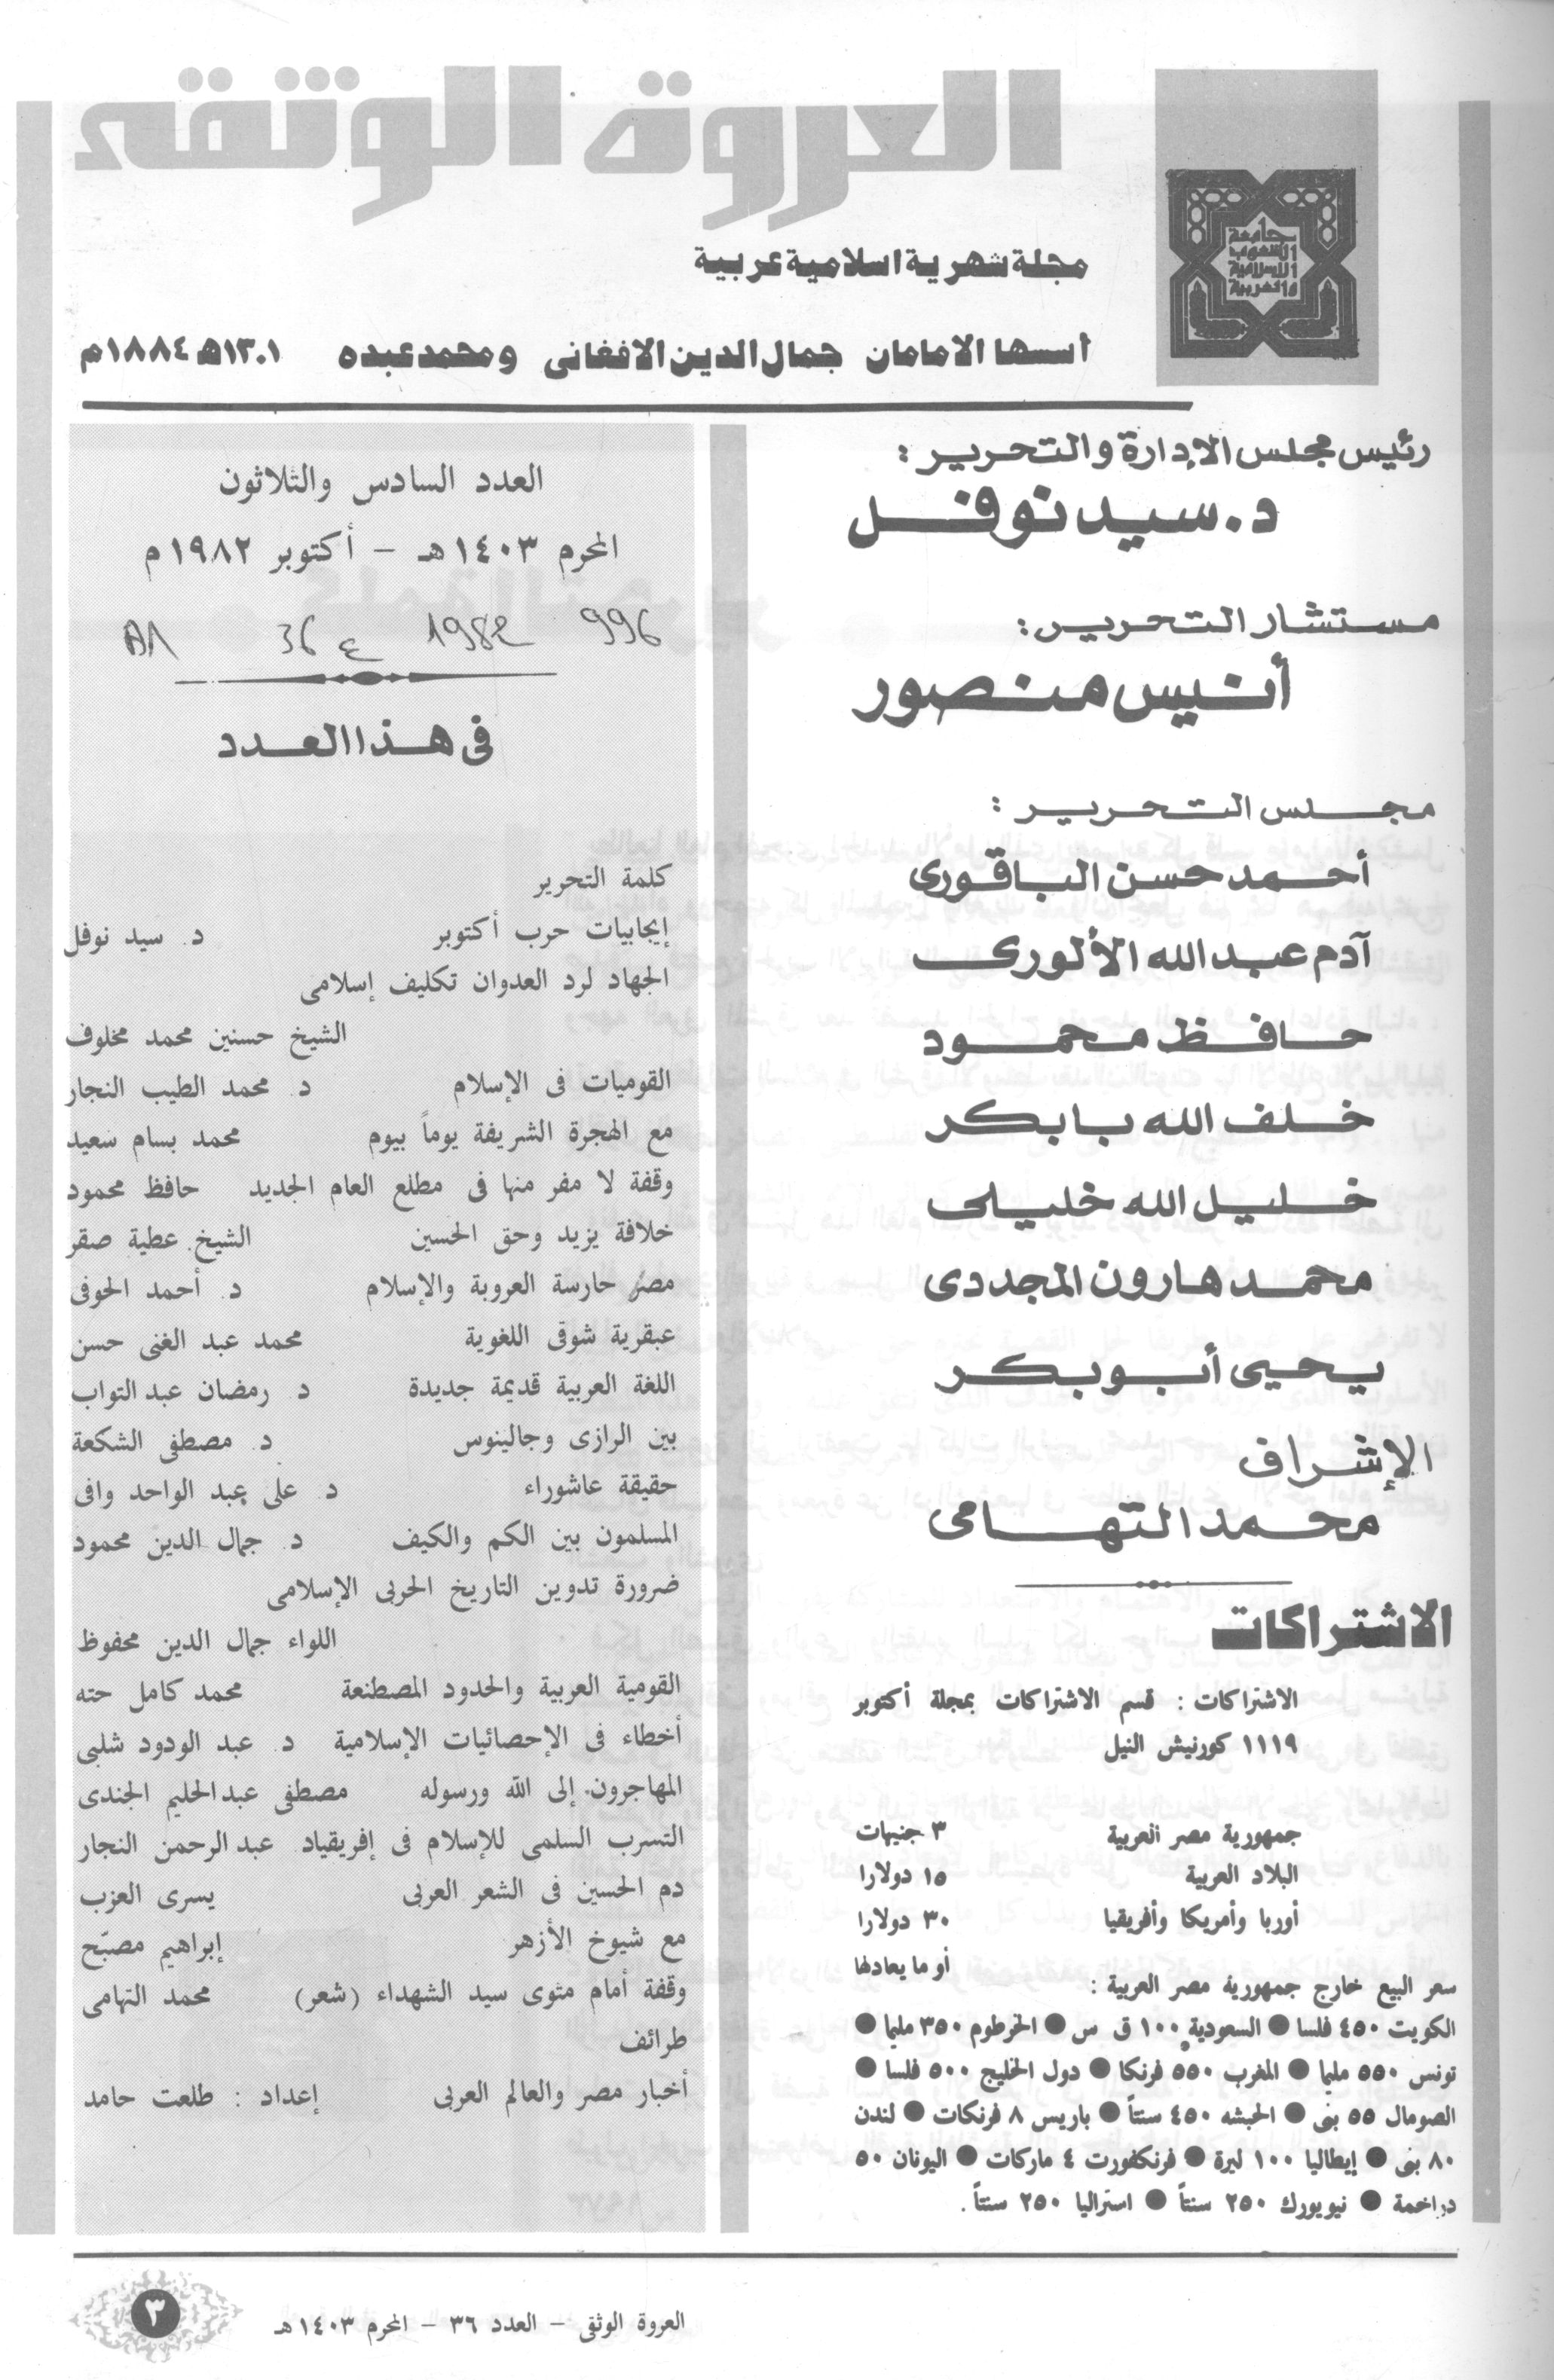 العروة الوثقى
جامعة
الشعوب
الإسلامية
والعربية
مجلة شهرية اسلامية عربية
أسسها الامامان جمال الدين الافغانى ومحمد عبده ١٣٠١هـ ١٨٨٤م
رئيس مجلس الإدارة والتحرير :
د. سيد نوفل
مستشار التحرير :
أنيس منصور
مجلس التحرير :
أحمد حسن الباقورى
آدم عبد الله الألورى
حافظ محمود
خلف الله بابكر
خليل الله خليلى
محمد هارون المجددى
يحيى أبو بكر
الإشراف
محمد التهامى
الاشتراكات
الاشتراكات : قسم الاشتراكات بمجلة أكتوبر
١١١٩ كورنيش النيل
جمهورية مصر العربية ٣ جنيهات
البلاد العربية ١٥ دولارا
أوربا وأمريكا وأفريقيا ٣٠ دولارا
أو ما يعادلها
سعر البيع خارج جمهورية مصر العربية :
الكويت ٤٥٠ فلسا ● السعودية ١٠٠ ق س ● الخرطوم ٣٥٠ مليما ●
تونس ٥٥٠ مليما ● المغرب ٥٥٠ فرنكا ● دول الخليج ٥٠٠ فلسا ●
الصومال ٥٥ بنى ● الحبشه ٤٥٠ سنتاً ● باريس ٨ فرنكات ● لندن
٨٠ بنى ● إيطاليا ١٠٠ ليرة ● فرنكفورت ٤ ماركات ● اليونان ٥٠
دراخمة ● نيويورك ٢٥٠ سنتاً ● استراليا ٢٥٠ سنتاً .
العدد السادس والثلاثون
المحرم ١٤٠٣ هـ – أكتوبر ١٩٨٢ م
996 1982 ع 36
فى هذا العدد
كلمة التحرير
إيجابيات حرب أكتوبر د. سيد نوفل
الجهاد لرد العدوان تكليف إسلامى
الشيخ حسنين محمد مخلوف
القوميات فى الإسلام د. محمد الطيب النجار
مع الهجرة الشريفة يوماً بيوم محمد بسام سعيد
وقفة لا مفر منها فى مطلع العام الجديد حافظ محمود
خلافة يزيد وحق الحسين الشيخ عطية صقر
مصر حارسة العروبة والإسلام د. أحمد الحوفى
عبقرية شوقى اللغوية محمد عبد الغنى حسن
اللغة العربية قديمة جديدة د. رمضان عبد التواب
بين الرازى وجالينوس د. مصطفى الشكعة
حقيقة عاشوراء د. على عبد الواحد وافى
المسلمون بين الكم والكيف د. جمال الدين محمود
ضرورة تدوين التاريخ الحربى الإسلامى
اللواء جمال الدين محفوظ
القومية العربية والحدود المصطنعة محمد كامل حته
أخطاء فى الإحصائيات الإسلامية د. عبد الودود شلبى
المهاجرون إلى الله ورسوله مصطفى عبد الحليم الجندى
التسرب السلمى للإسلام فى إفريقيا د. عبد الرحمن النجار
دم الحسين فى الشعر العربى يسرى العزب
مع شيوخ الأزهر إبراهيم مصبّح
وقفة أمام مثوى سيد الشهداء (شعر) محمد التهامى
طرائف
أخبار مصر والعالم العربى إعداد : طلعت حامد
العروة الوثقى – العدد ٣٦ – المحرم ١٤٠٣ هـ
٣